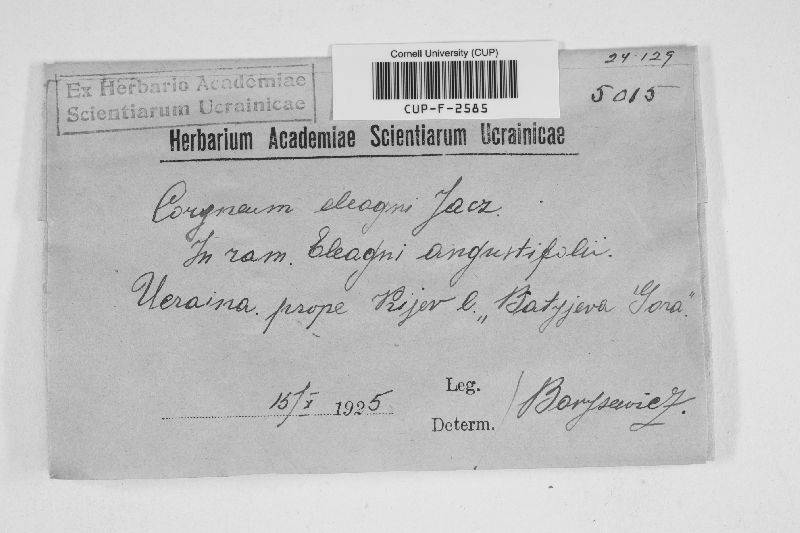 Cornell University (CUP)
CUP-F-2585
24-129
5015
Ex Herbario Academiae
Scientiarum Ucrainicae
Herbarium Academiae Scientiarum Ucrainicae
Coryneum eleagni Jacz.
In ram. Eleagni angustifolii.
Ucraina. prope Kijev l. „Batyjeva Gora".
15/X 1925
Leg.
Determ.
Borysewicz.